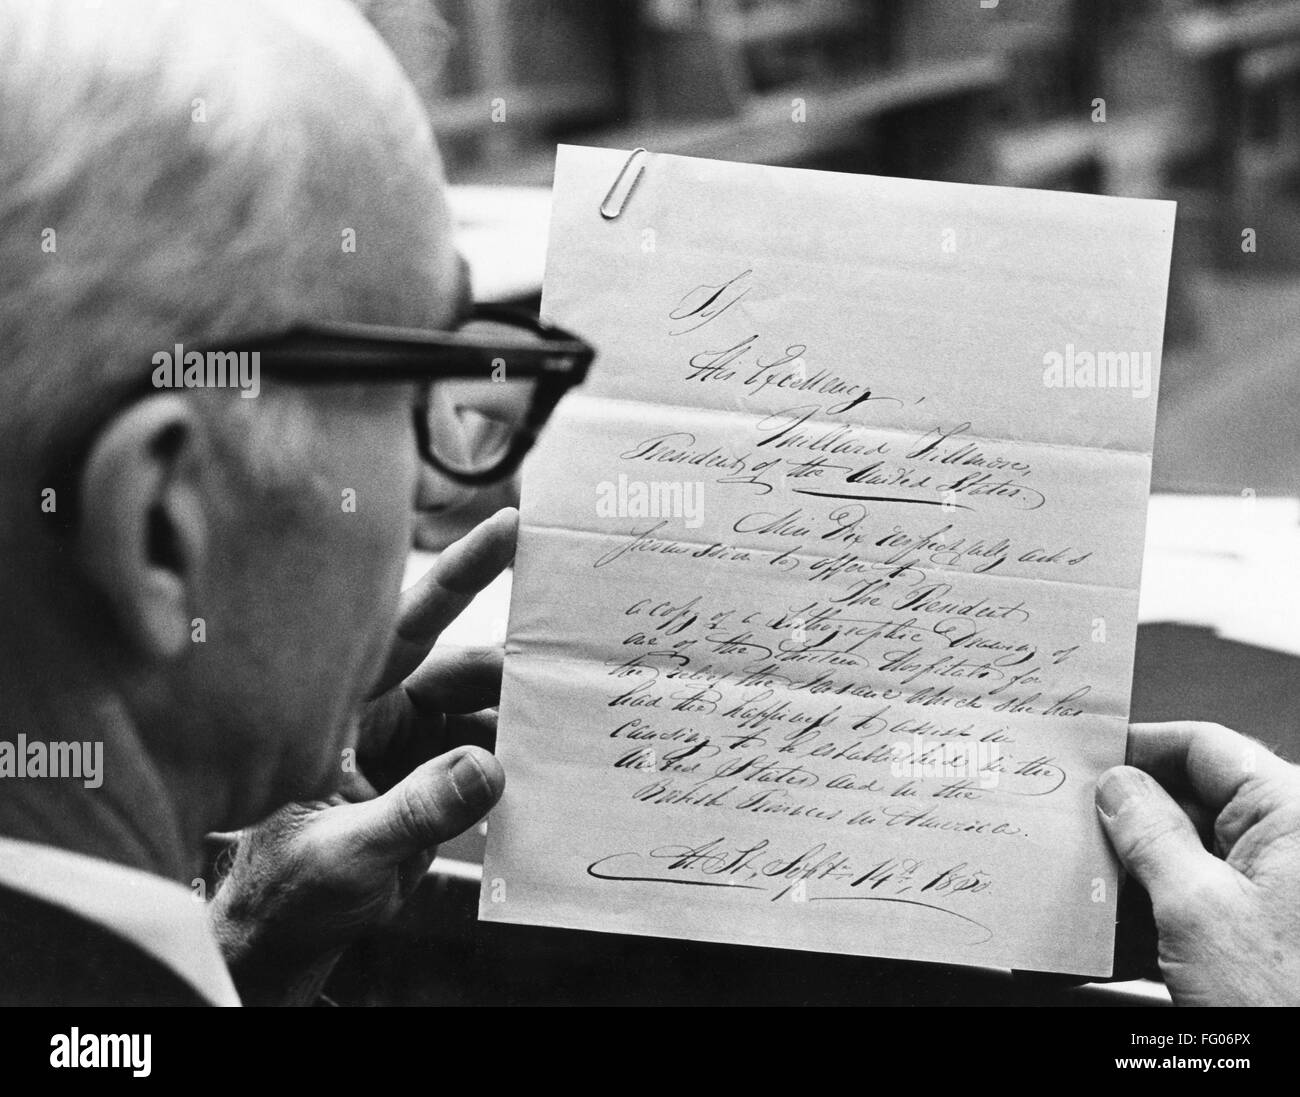 To
His Excellency,
Millard Fillmore,
President of the United States.
Miss Dix respectfully asks
permission to offer to
The President
a copy of a Lithographic Drawing of
one of the thirteen Hospitals for
the relief the Insane which she has
had the happiness to assist in
causing to be established in the
United States and in the
British Provinces in America.
H. St, Sept. 14th, 1850.
a
alamy
a alamy stock photo
FG06PX
www.alamy.com